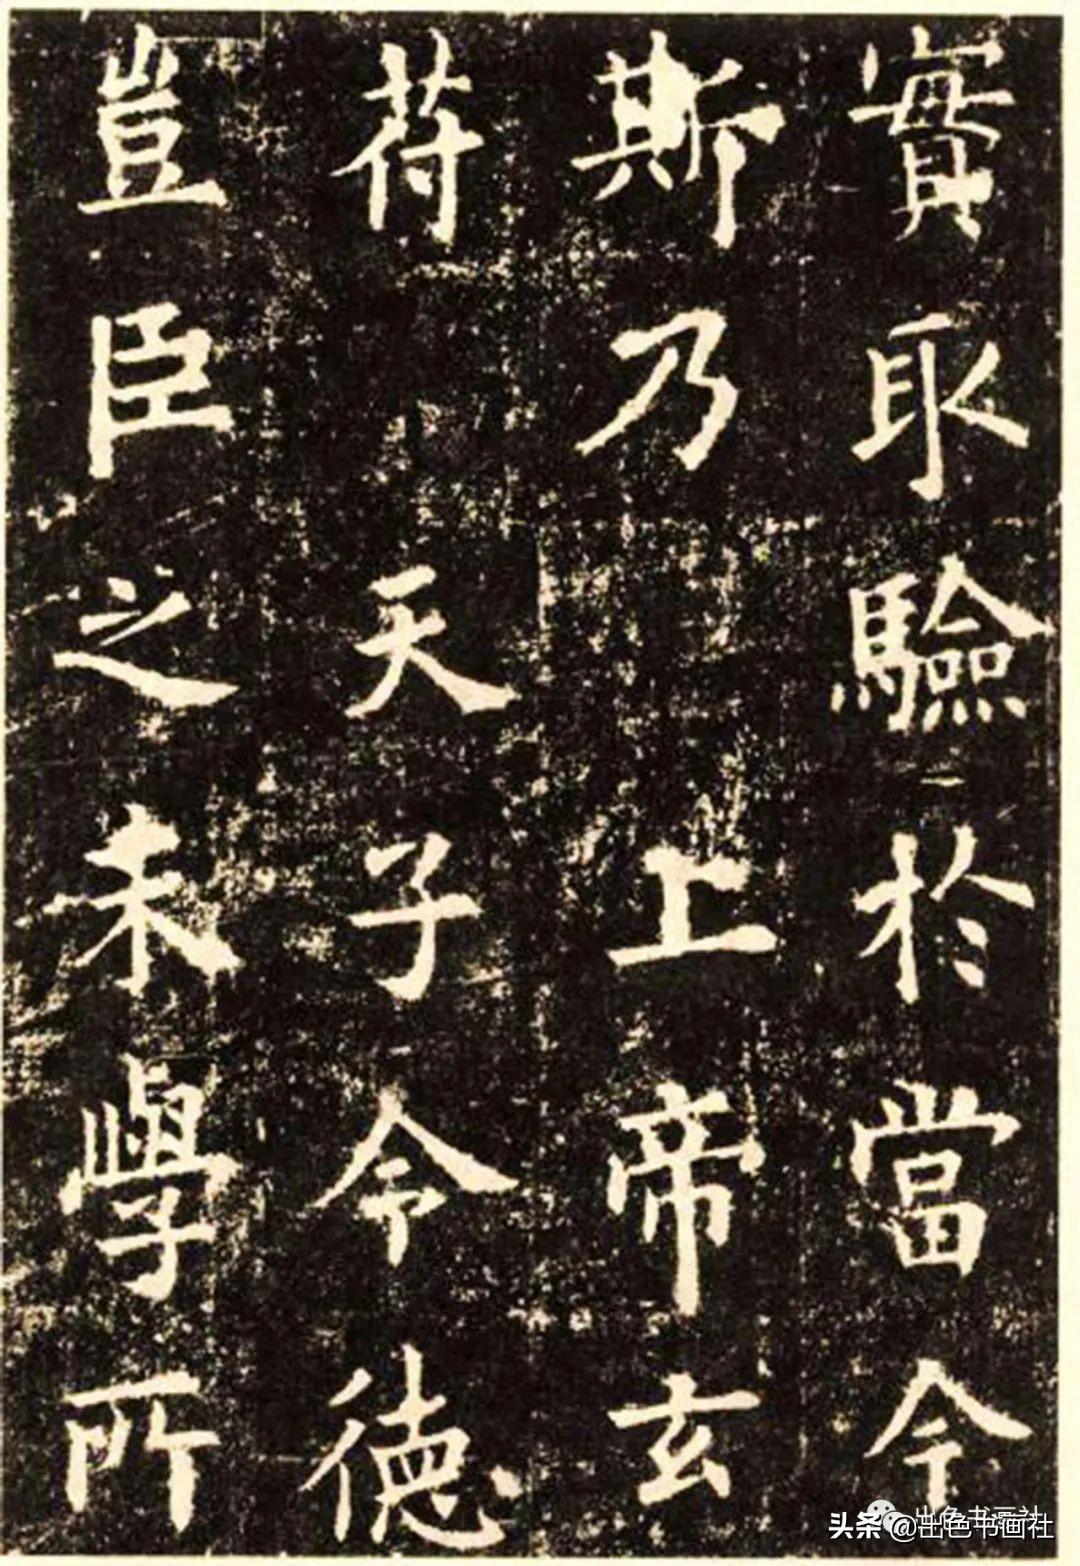 實取驗於當今
斯乃上帝玄
苻天子令德
豈臣之末學所
出色书画社
头条@出色书画社